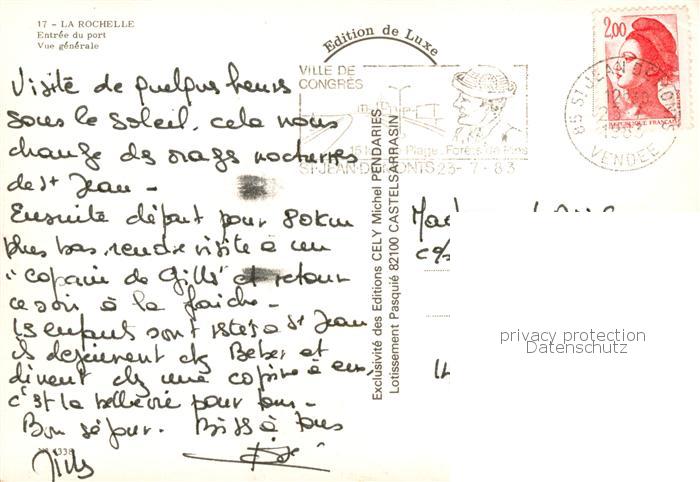 17 - LA ROCHELLE
Entrée du port
Vue générale
Visite de quelques heures
sous le soleil, cela nous
change des orages nocturnes
de St Jean -
Ensuite départ pour 80km
plus bas, rendre visite à un
"copain de Gills" et retour
ce soir à la fraiche -
Les enfants sont restés à St Jean
ils dejeunent chez Beber et
dinent chez une copine à eux,
c'est la belle vie pour tous -
Bon séjour. Bises à tous
Gills
Edition de Luxe
Exclusivité des Editions CELY Michel PENDARIES
Lotissement Pasquié 82100 CASTELSARRASIN
VILLE DE
CONGRÈS
Plage - Forêts de Pins
ST-JEAN-DE-MONTS 23-7-83
85 ST JEAN DE MONTS
1983
VENDEE
2,00
REPUBLIQUE FRANCAISE
c/o
privacy protection
Datenschutz